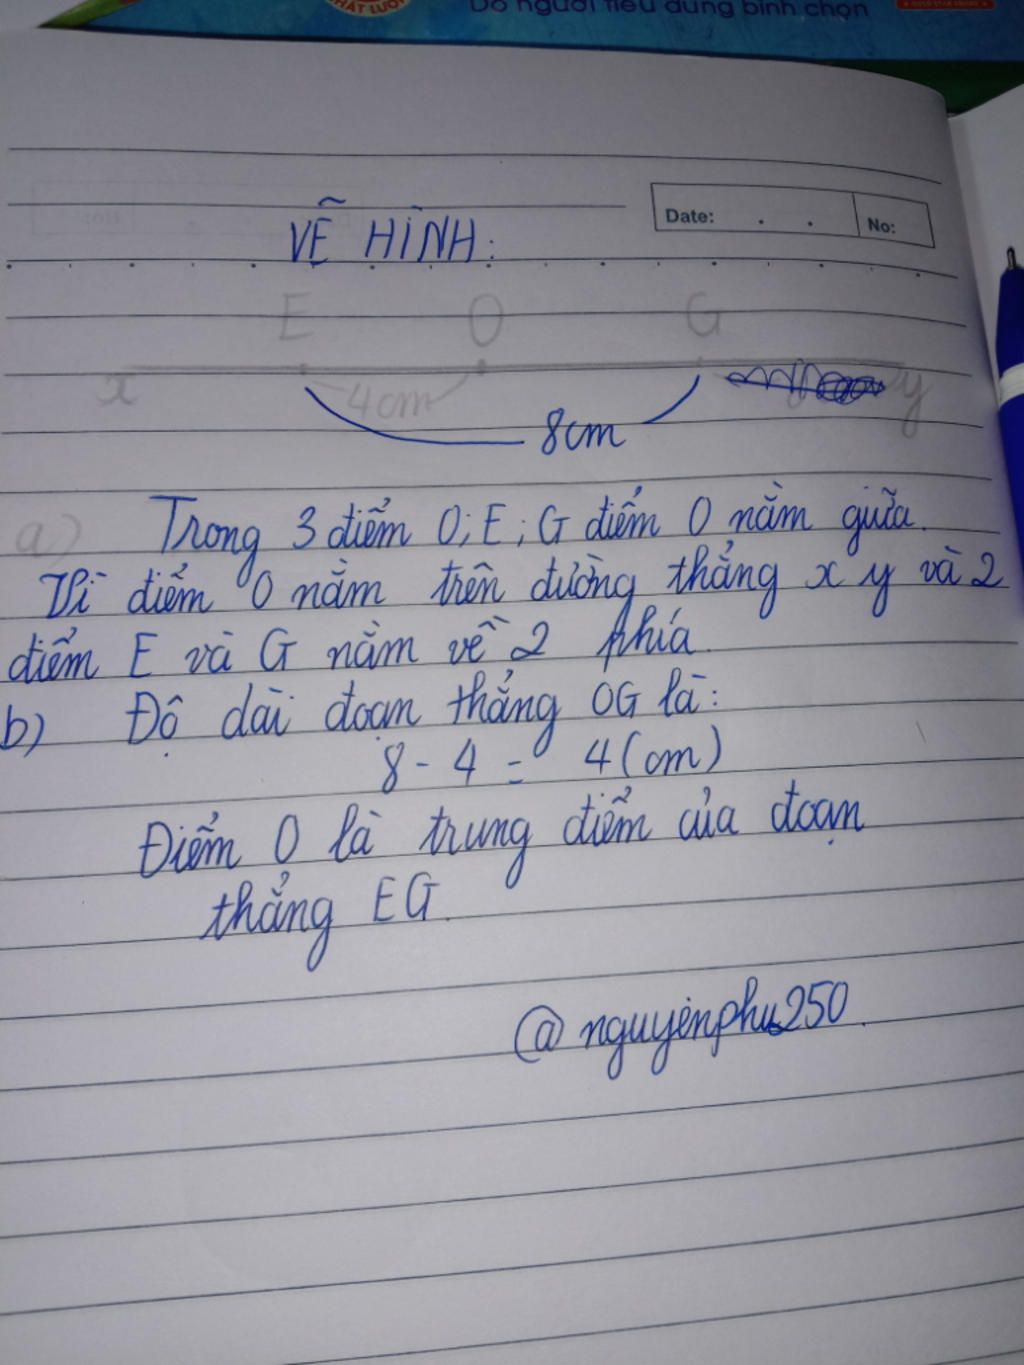 Do người tiêu dùng bình chọn
Date: . . No:
VẼ HÌNH:
E O G
x 4cm y
8cm
a) Trong 3 điểm O; E; G điểm O nằm giữa.
Vì điểm O nằm trên đường thẳng x y và 2
điểm E và G nằm về 2 phía.
b) Độ dài đoạn thẳng OG là:
8 - 4 = 4 (cm)
Điểm O là trung điểm của đoạn
thẳng EG.
@nguyenphu250.